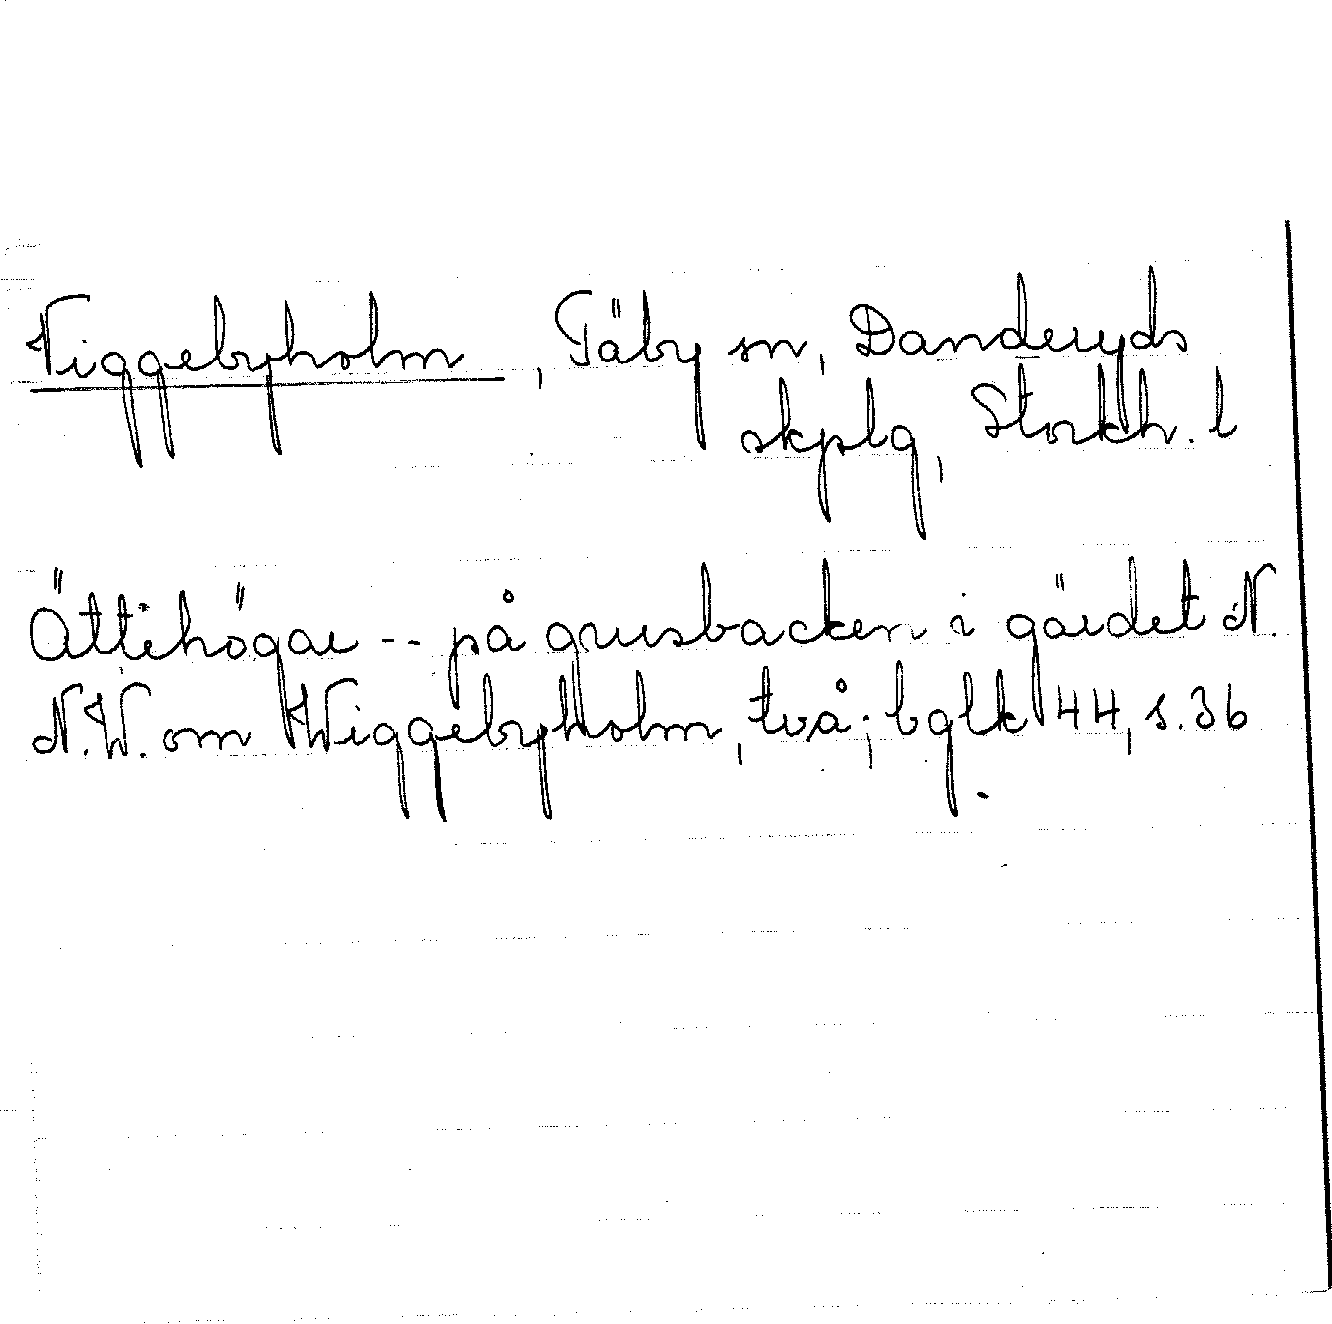 Viggebyholm, Täby sn, Danderyds
skplg, Stockh. l
Ättehögar -- på grusbacken i gärdet N.
N.W. om Wiggebyholm, två; bglk 44, s. 36